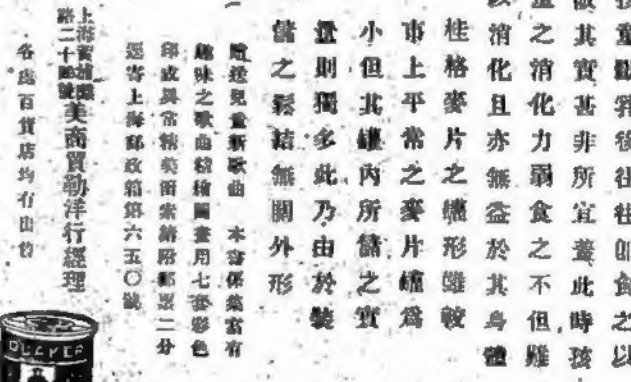 斷後往往即食之以
飯其實甚非所宜蓋此時孩
童之消化力弱食之不但難
以消化且亦無益於其身體
桂格麥片之罐形雖較
市上平常之麥片罐爲
小但其罐內所儲之實
量則獨多此乃由於裝
儲之緊結無關外形
贈送兒童新歌曲 本書係集富有
趣味之歌曲精繪圖畫用七套彩色
印成異常精美函索請附郵票二分
逕寄上海郵政信箱第六五〇號
上海黃浦灘路二十四號美商貿勒洋行經理
各埠百貨店均有出售
QUAKER